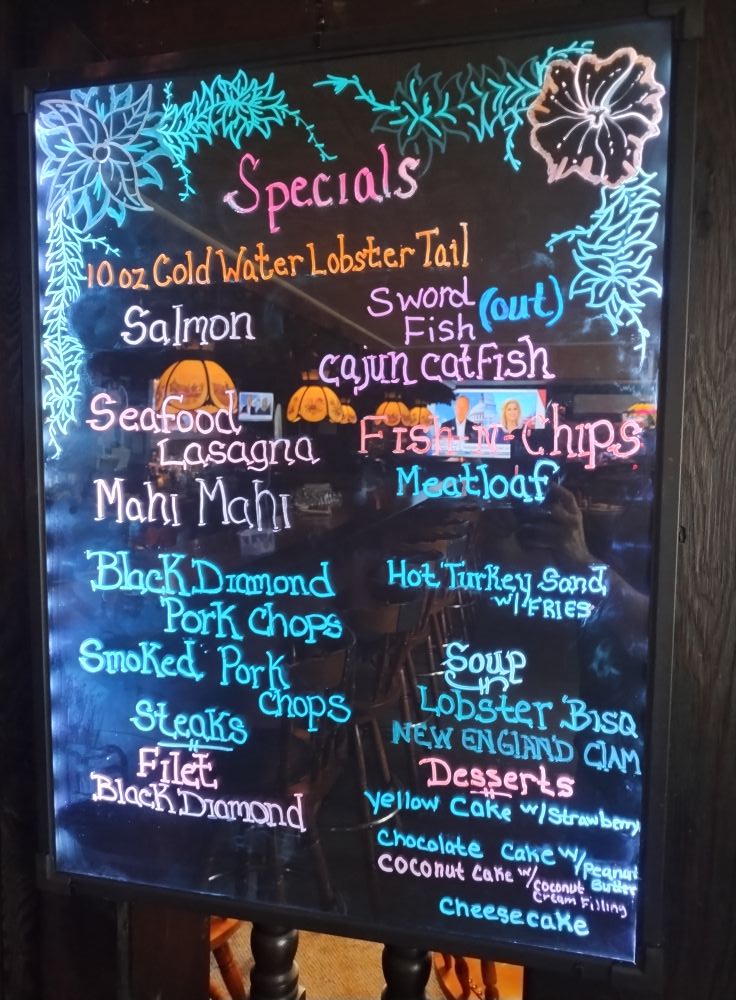 Specials
10 oz Cold Water Lobster Tail
Salmon
Seafood
Lasagna
Mahi Mahi
Black Diamond
Pork Chops
Smoked Pork
Chops
Steaks
Filet
Black Diamond
Sword
Fish (out)
Cajun Catfish
Fish-N-Chips
Meatloaf
Hot Turkey Sand
w/ FRIES
Soup
Lobster Bisq
NEW ENGLAND ClAM
Desserts
Yellow Cake w/ Strawberry
Chocolate Cake w/ Peanut
Butter
Coconut Cake w/ Coconut
Cream Filling
Cheesecake